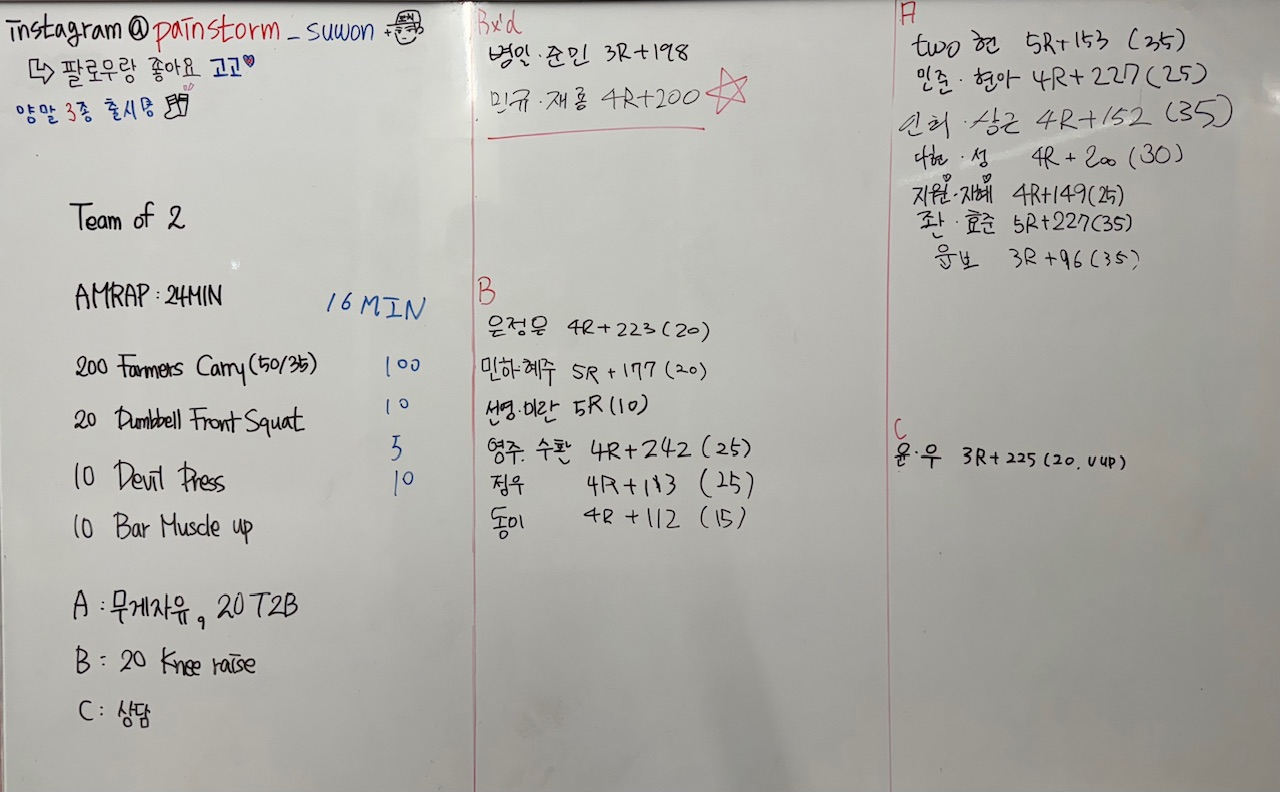 instagram@painstorm_suwon +
↳ 팔로우랑 좋아요 고고♥
양말 3종 출시중
Team of 2
AMRAP : 24MIN 16 MIN
200 Farmers Carry (50/35) 100
20 Dumbbell Front Squat 10
10 Devil Press 5
10 Bar Muscle up 10
A : 무게자유, 20 T2B
B : 20 Knee raise
C : 상담
Rx'd
병일·준민 3R+198
민규·재롱 4R+200
B
은정은 4R+223(20)
민하·혜주 5R+177(20)
선영·미란 5R(10)
영주·수환 4R+242(25)
정우 4R+183(25)
동이 4R+112(15)
A
two 현 5R+153(35)
민준·현아 4R+227(25)
신희·상근 4R+152(35)
다현·성 4R+200(30)
지원·지혜 4R+149(25)
좌·효준 5R+227(35)
윤보 3R+96(35)
C
윤·우 3R+225(20. V UP)